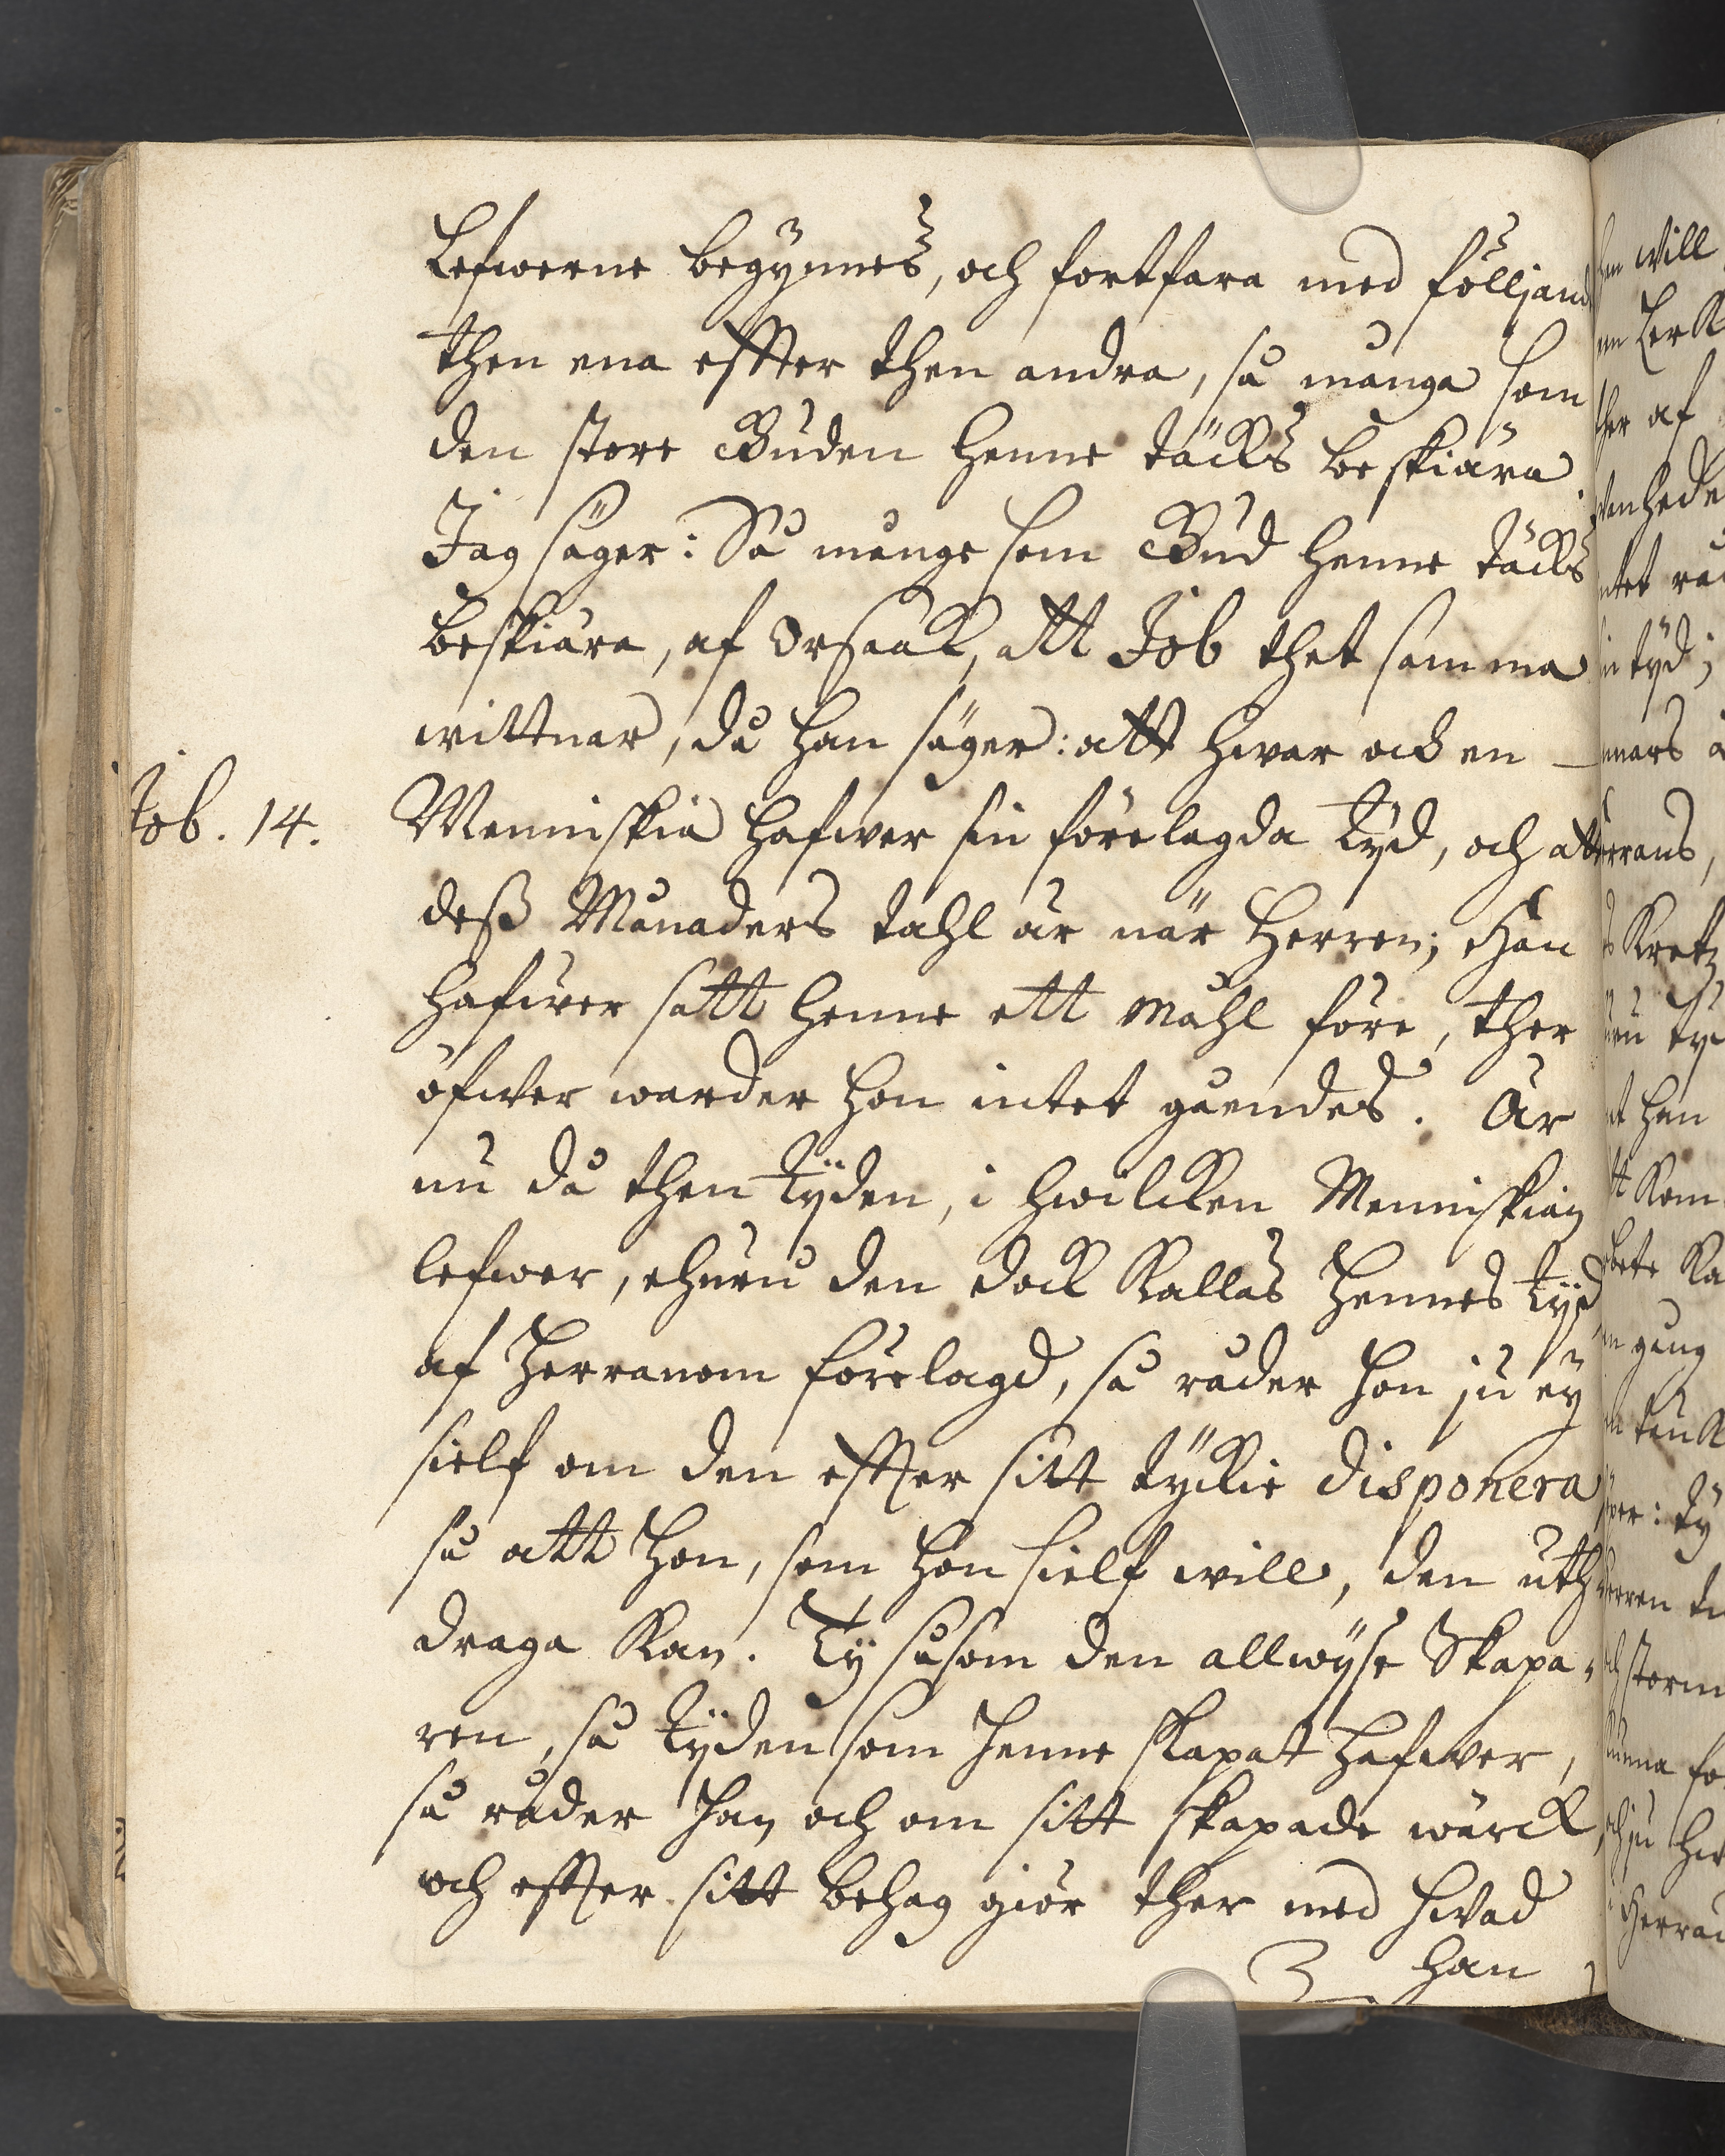 Lefwerne begynnes, och fortfara med földjand
then ena effter then andra, så många som
den store Guden henne täcks beskiära.
Jag säger: Så mange som Gud henne täcks
beskiära, af Orsaak, att Job thet samma
wittnar, då han säger: att hwar och en
Job. 14.
Menniskia hafwer sin förelagda tyd, och att
deß Månaders tahl är när Herren; Han
hafwer satt henne ett Måhl före, ther
öfwer warder hon intet gåendes. Är
nu då then tyden, i hwilcken Menniskian
lefwer, ehuru den dock kallas Hennes tyd
af Herranom förelagd, så råder hon ju ey
sielf om den effter sitt tyckie disponera
så att hon, som hon sielf will, den uth
draga kan. Ty såsom den allwyse Skapa-
ren, så tyden som henne skapat hafwer,
så råder han och om sitt skapade wärck,
och effter sitt behag giör ther med hwad
han
will
af
tyd;
han
kom
gång
: ty
storm